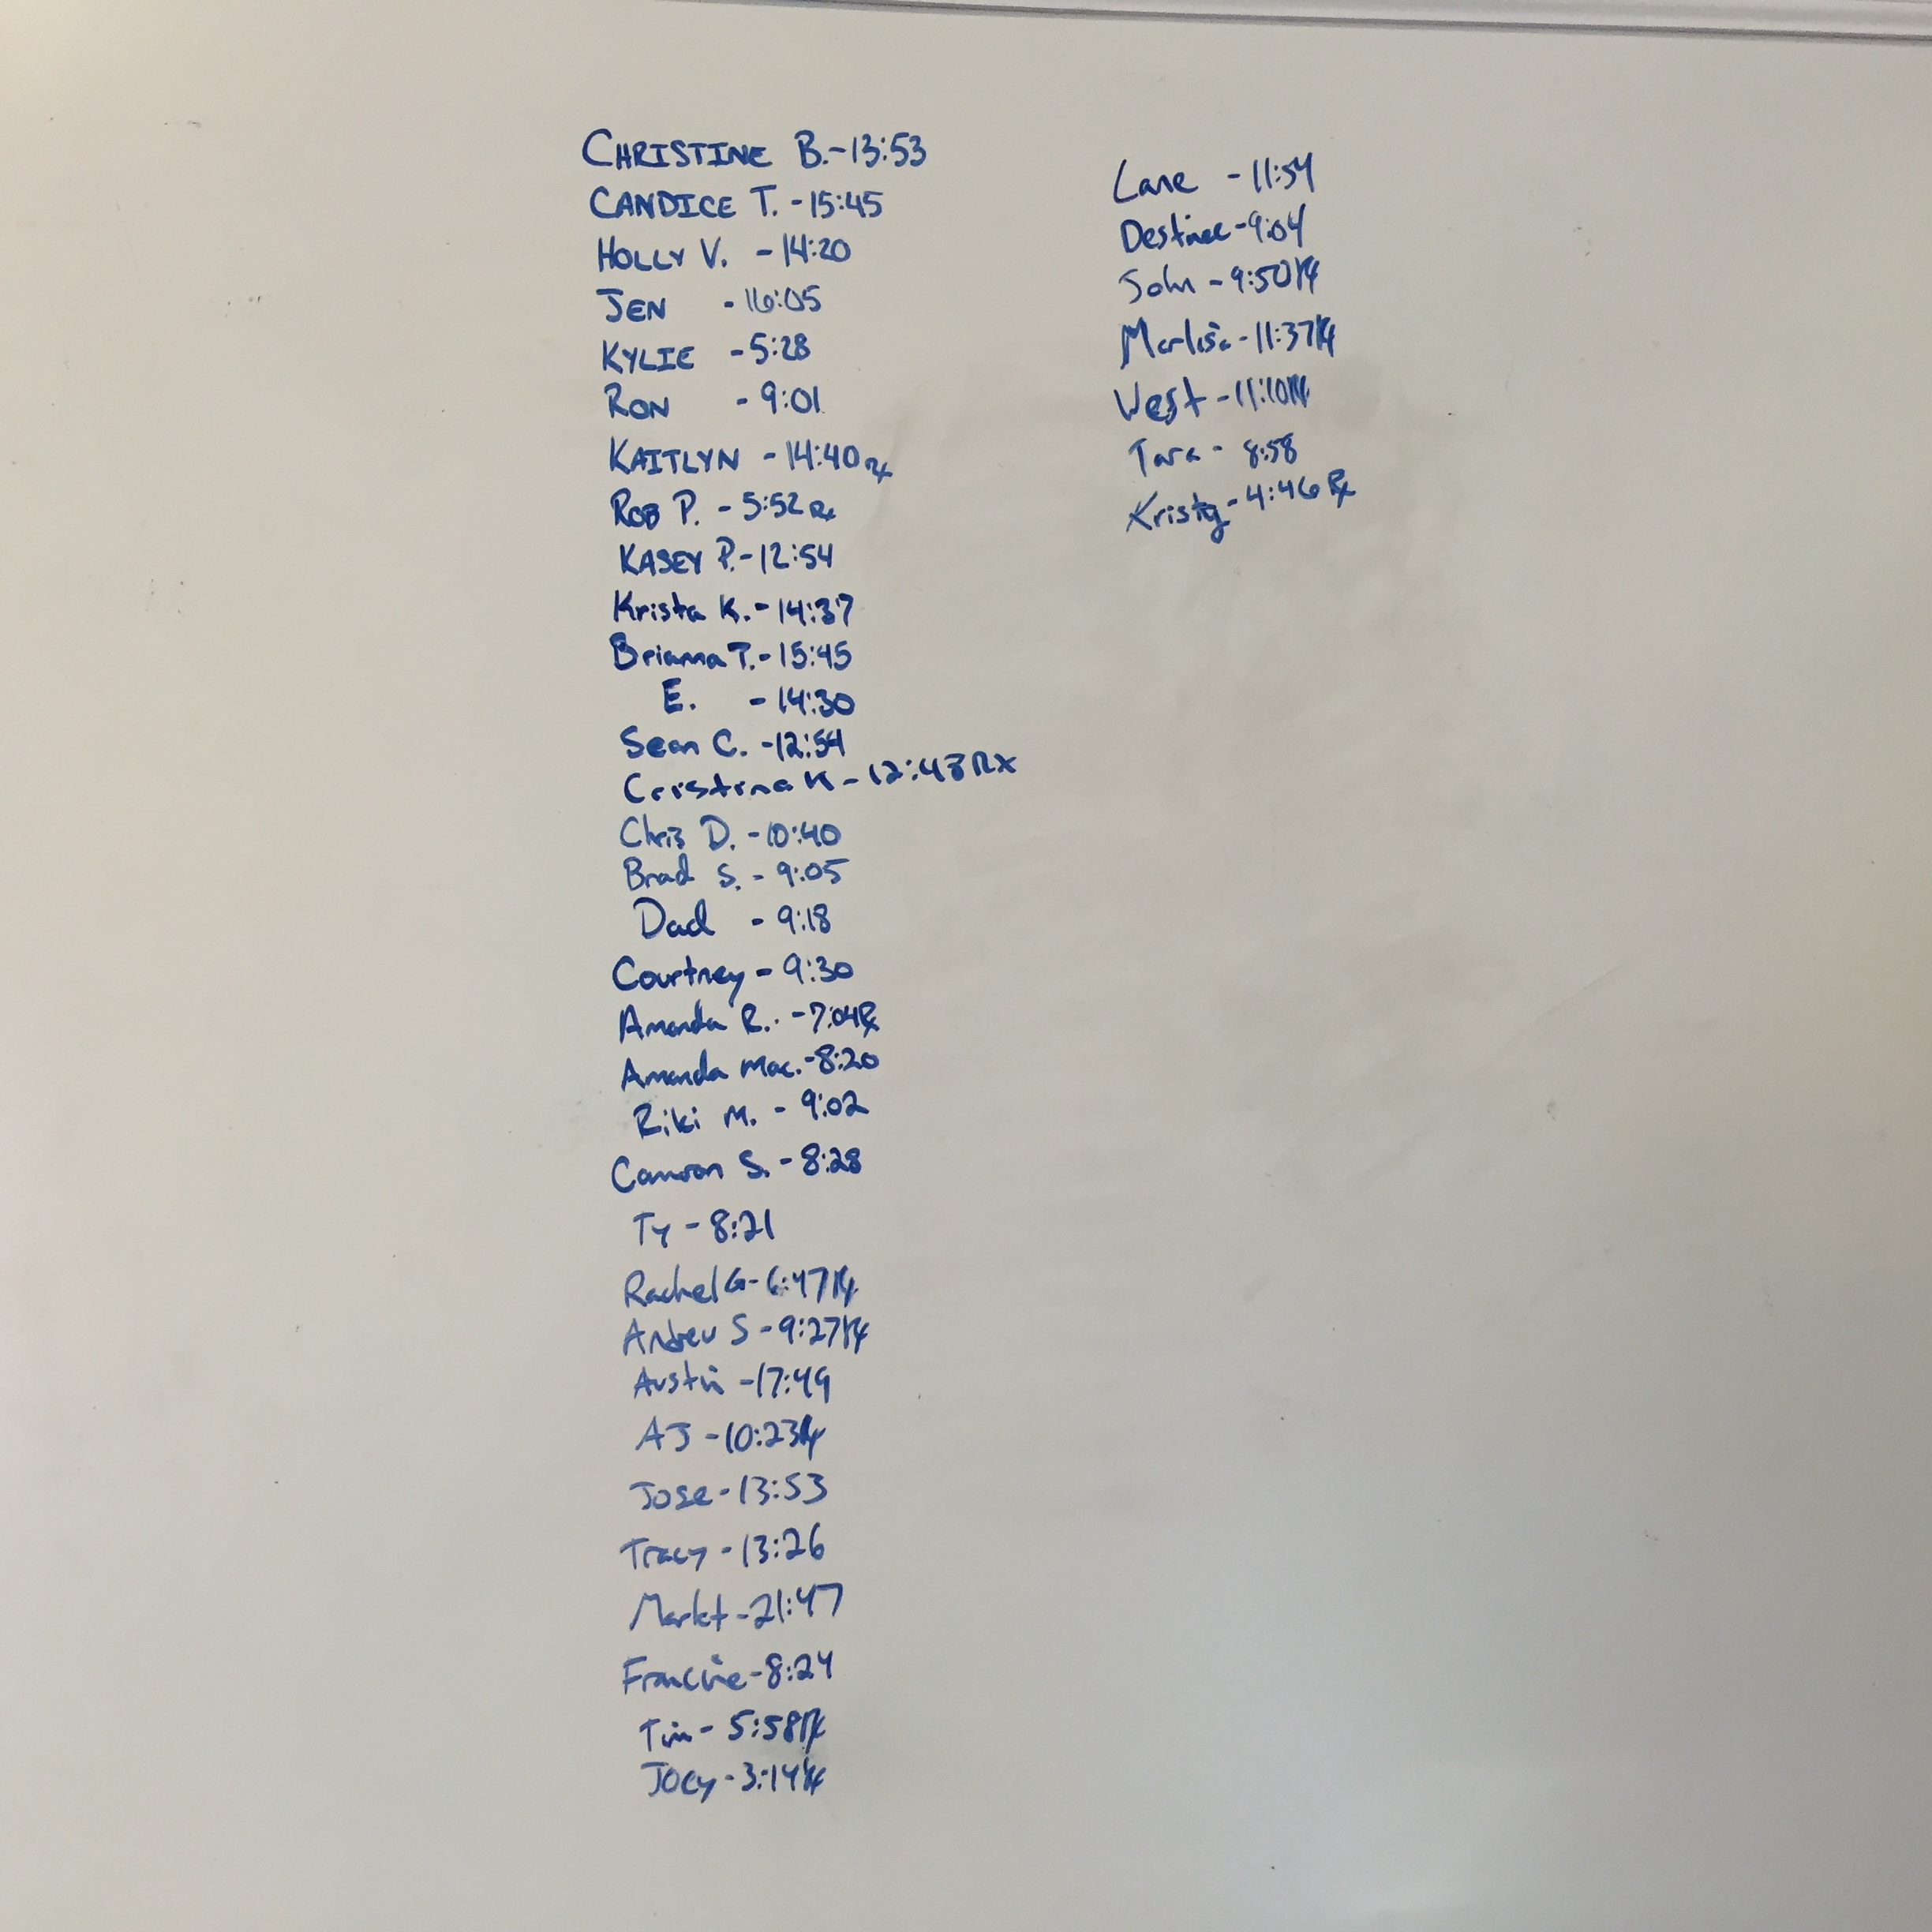 CHRISTINE B.-13:53
CANDICE T. -15:45
HOLLY V. -14:20
JEN -16:05
KYLIE -5:28
RON -9:01
KAITLYN -14:40 Rx
ROB P. -5:52 Rx
KASEY P.-12:54
Krista K.-14:37
Brianna T.-15:45
E. -14:30
Sean C. -12:54
Cristina K-12:48 RX
Chris D. -10:40
Brad S. - 9:05
Dad - 9:18
Courtney - 9:30
Amanda R. -7:04 Rx
Amanda Mac.-8:20
Riki M. - 9:02
Camron S. - 8:28
Ty - 8:21
Rachel G- 6:47 Rx
Andrew S -9:27 Rx
Austin -17:49
AJ -10:23 Rx
Jose -13:53
Tracy -13:26
Mark t -21:47
Francine -8:24
Tim - 5:58 Rx
Joey -3:14 Rx
Lane -11:54
Destinee -9:04
John -9:50 Rx
-11:37 Rx
West -11:10 Rx
Tara - 8:58
Kristy -4:46 Rx